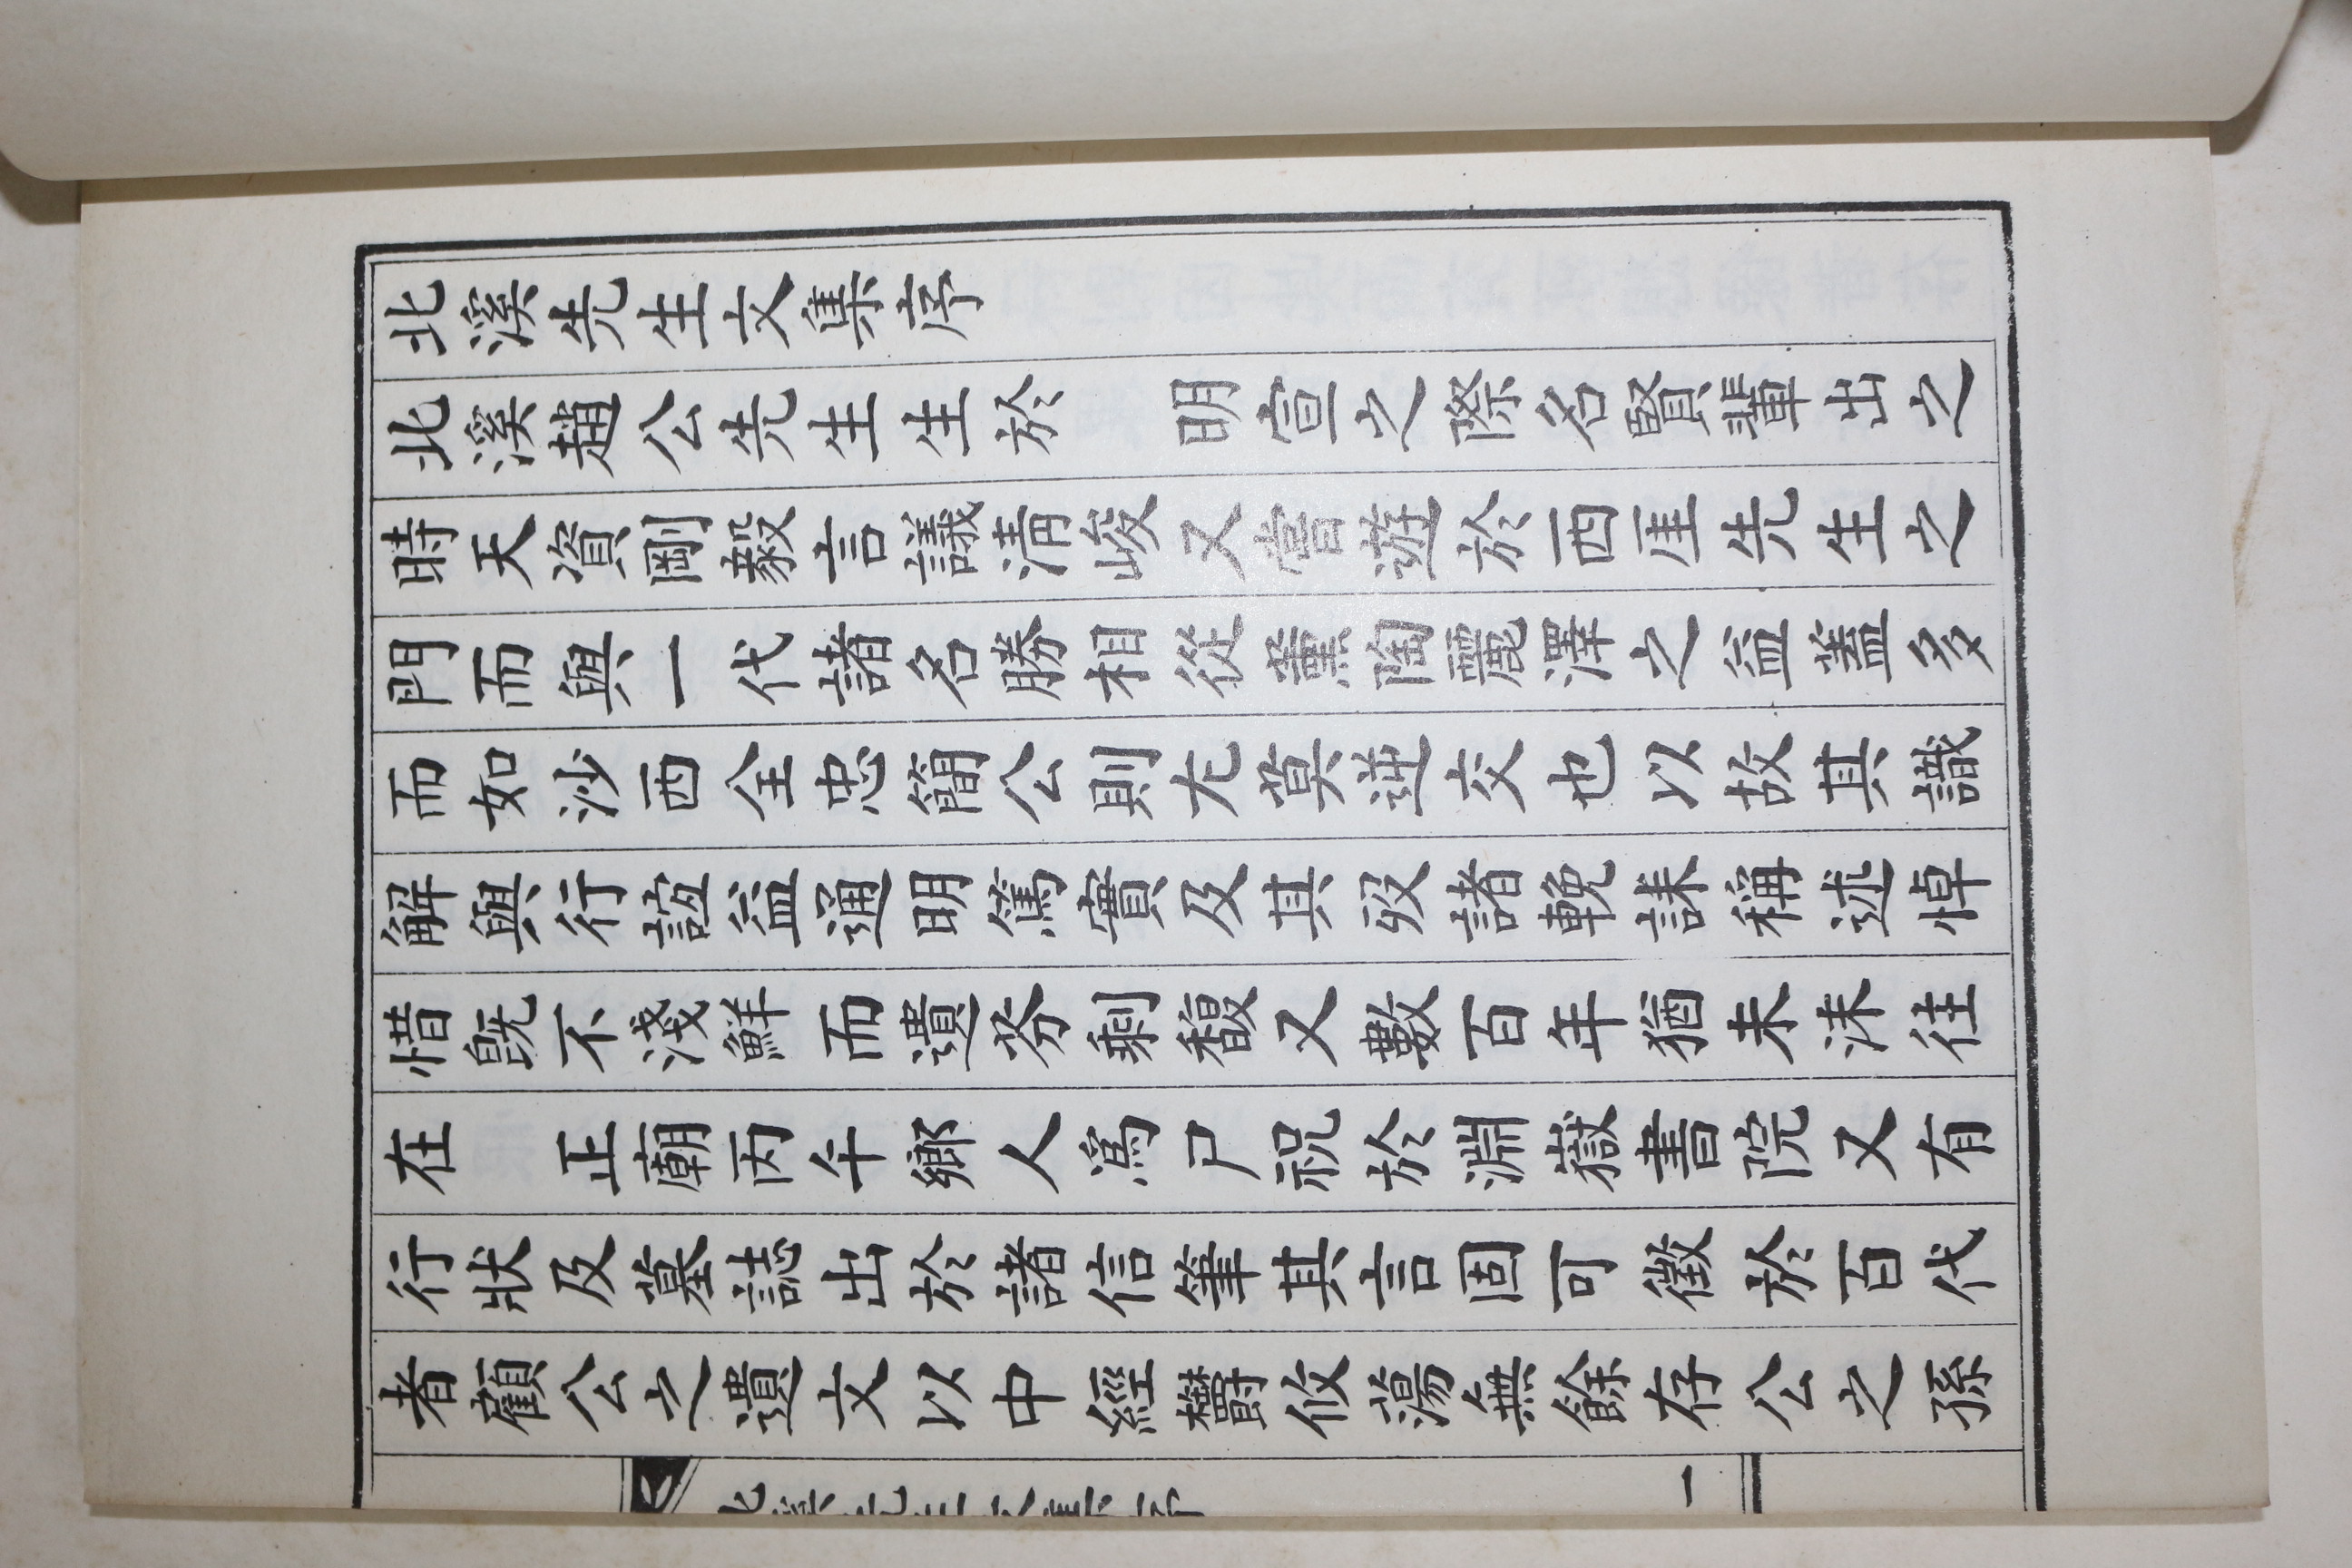 北溪先生文集序
北溪趙公先生生於　明宣之際名賢輩出之
時天資剛毅言議淸峻又嘗遊於西厓先生之
門而與一代諸名勝相從薰陶麗澤之益蓋多
而如沙西全忠簡公則尤莫逆交也以故其識
解與行誼益通明篤實及其歿諸輓誄稱述悼
惜旣不淺鮮而遺芬剩馥又數百年猶未沫往
在　正廟丙午鄉人爲尸祝於淵嶽書院又有
行狀及墓誌出於諸信筆其言固可徵於百代
者顧公之遺文以中經欝攸蕩無餘存公之孫
北溪先生文集序
一